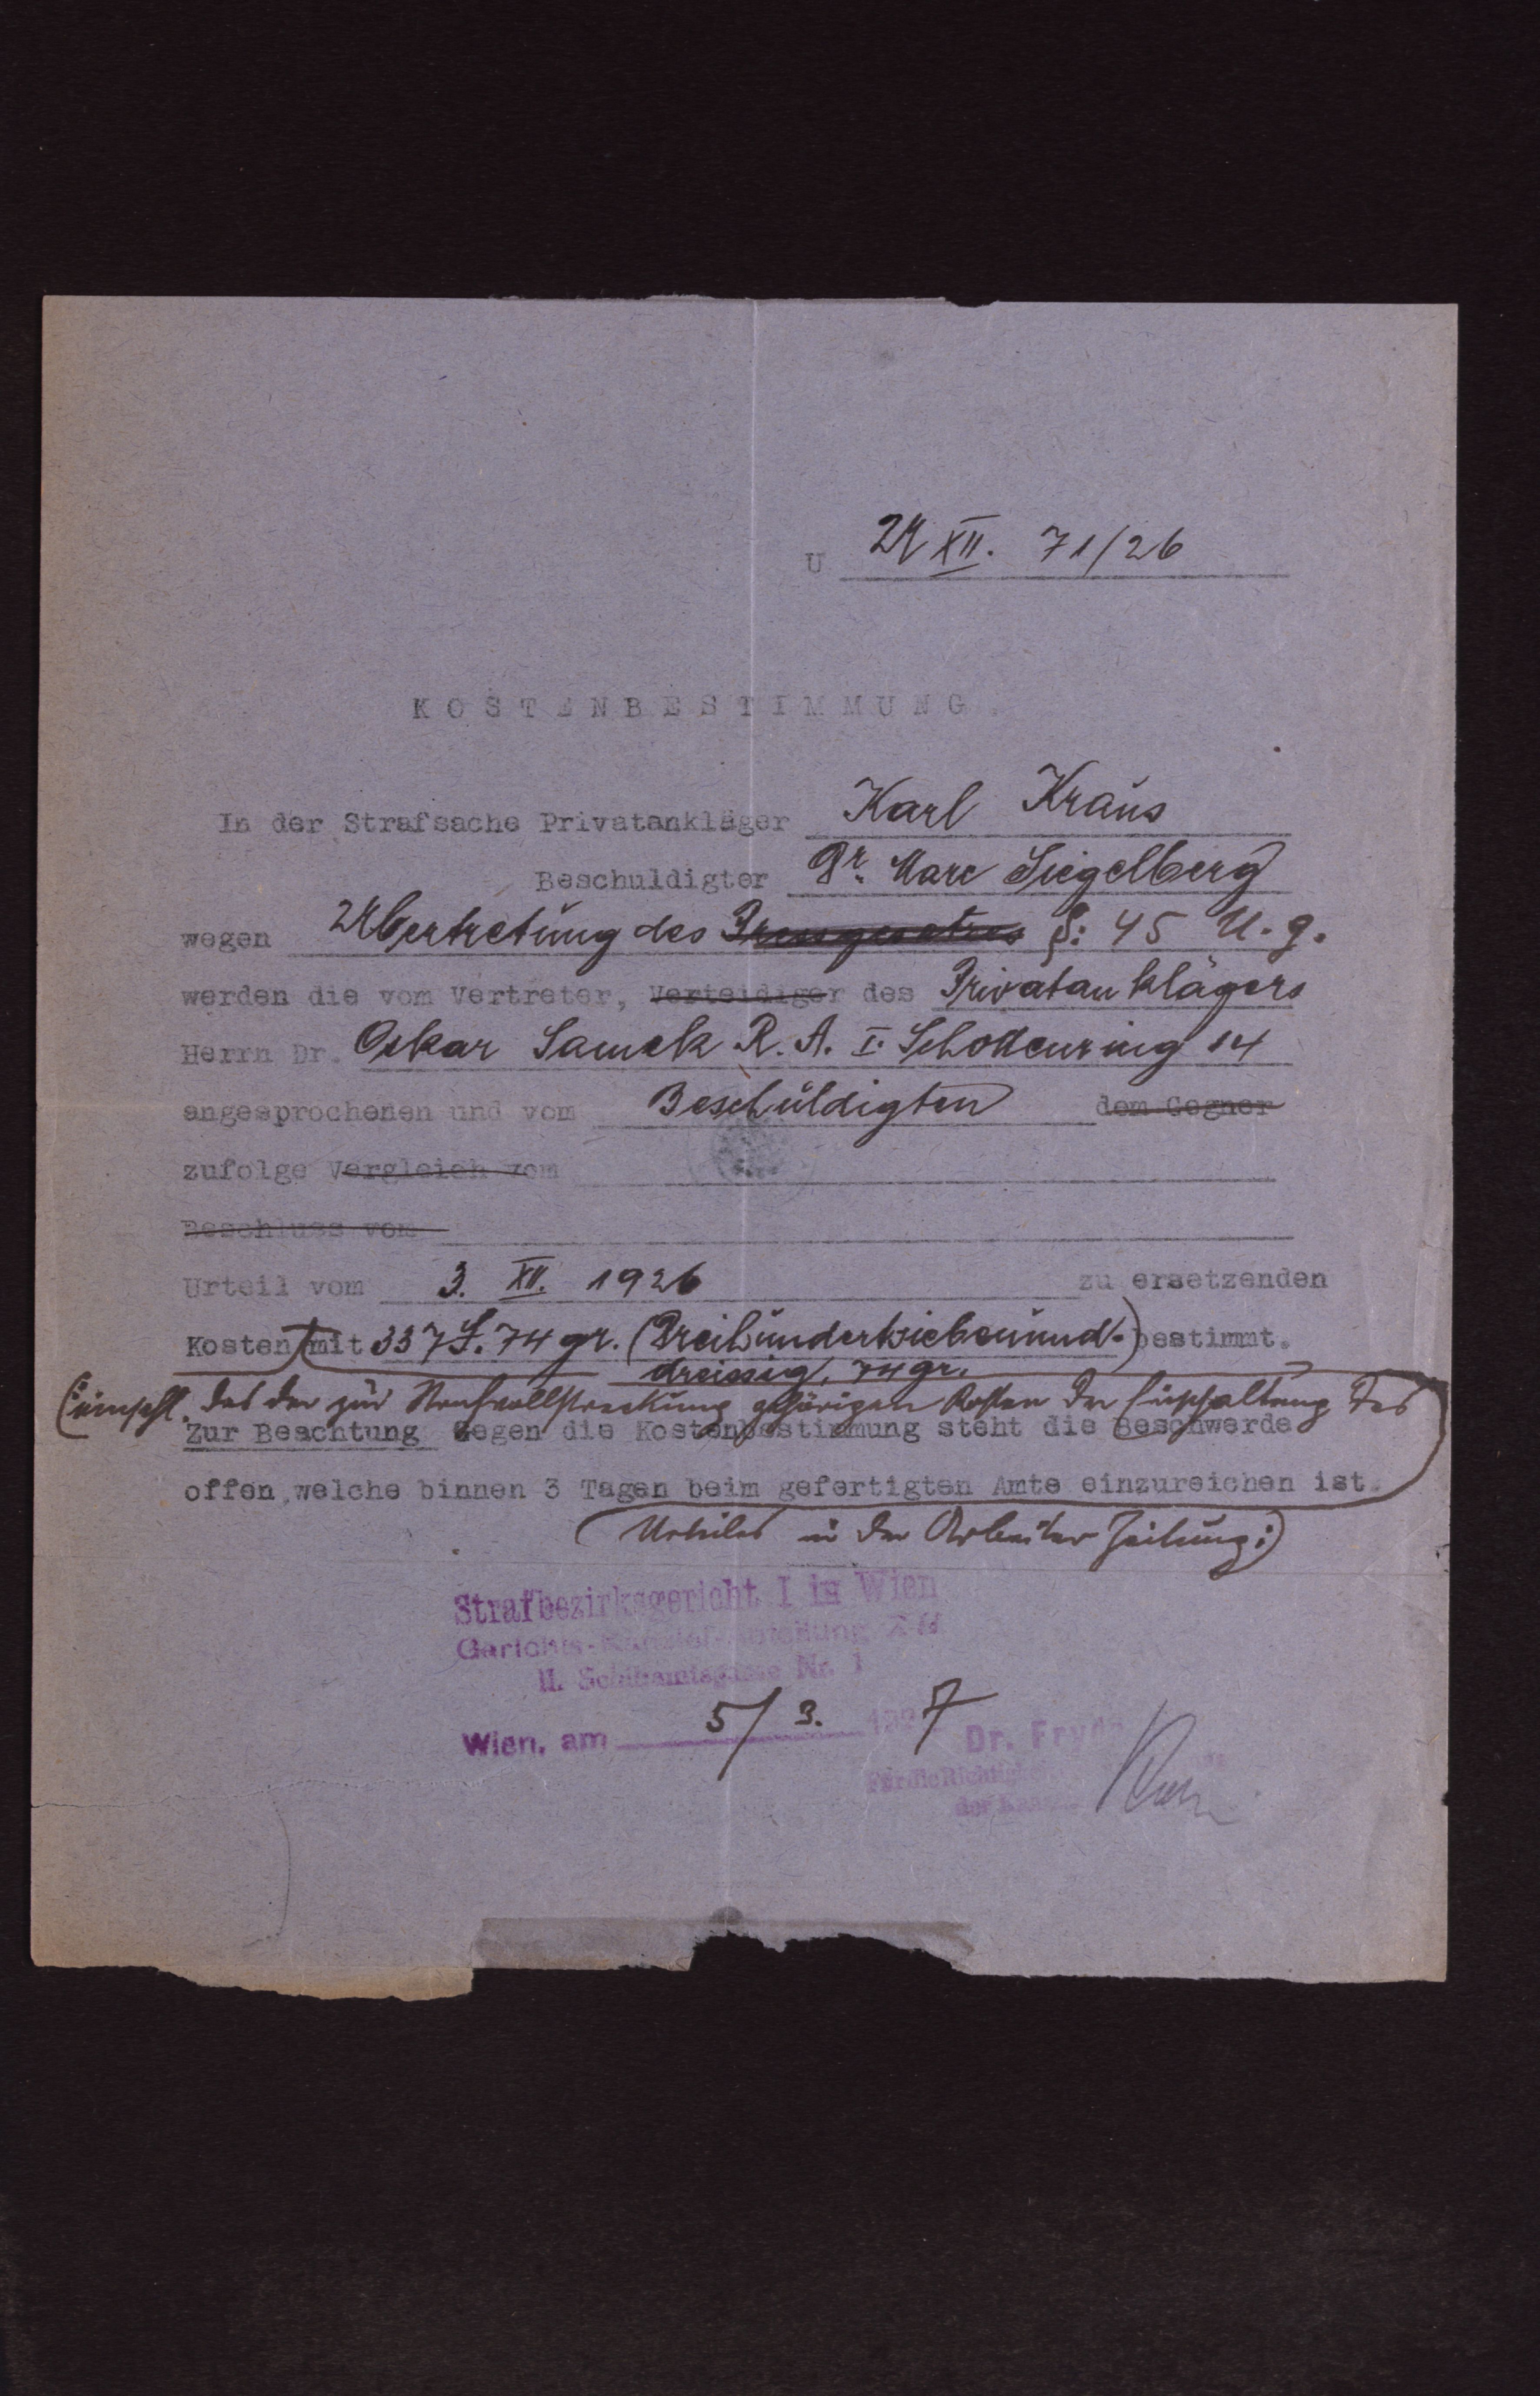 U 24 XII. 71/26
KOSTENBESTIMMUNG.
In der Strafsache Privatankläger Karl Kraus
Beschuldigter Dr. Marc Siegelberg
wegen Übertretung des Pressgesetzes §: 45 U. g.
werden die vom Vertreter, Verteidiger des Privatanklägers
Herrn Dr. Oskar Samek R. A. I. Schottenring 14
angesprochenen und vom Beschuldigten dem Gegner
zufolge Vergleich vom
Beschluss vom
Urteil vom 3. XII. 1926 zu ersetzenden
Kosten mit 337 S. 74 gr. (Dreihundertsiebenund-) bestimmt.
dreissig, 74 gr.
(: einschl. das der zur Strafvollstreckung gehörigen Kosten der Einschaltung des
Zur Beachtung Gegen die Kostenbestimmung steht die Beschwerde
offen, welche binnen 3 Tagen beim gefertigten Amte einzureichen ist.
Urteiles in der Arbeiter Zeitung :)
Strafbezirksgericht I in Wien
Gerichts-Kanzlei-Abteilung XII
II. Schiffamtsgasse Nr. 1
Wien, am 5/3. 1927
Dr. Fryda
Für die Richtigkeit
der